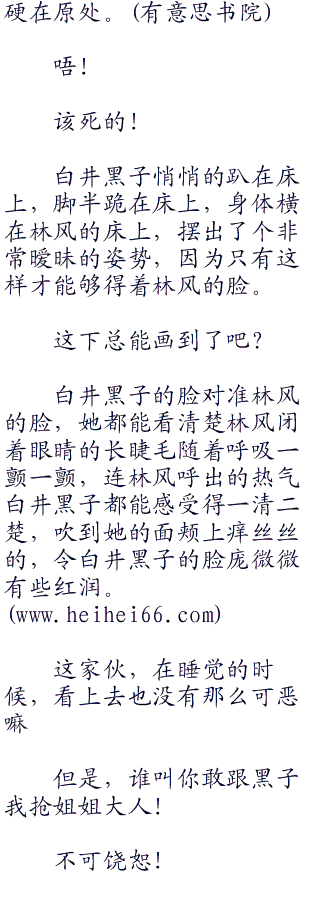 硬在原处。(有意思书院)
唔！
该死的！
白井黑子悄悄的趴在床
上，脚半跪在床上，身体横
在林风的床上，摆出了个非
常暧昧的姿势，因为只有这
样才能够得着林风的脸。
这下总能画到了吧？
白井黑子的脸对准林风
的脸，她都能看清楚林风闭
着眼睛的长睫毛随着呼吸一
颤一颤，连林风呼出的热气
白井黑子都能感受得一清二
楚，吹到她的面颊上痒丝丝
的，令白井黑子的脸庞微微
有些红润。
(www.heihei66.com)
这家伙，在睡觉的时
候，看上去也没有那么可恶
嘛
但是，谁叫你敢跟黑子
我抢姐姐大人！
不可饶恕！